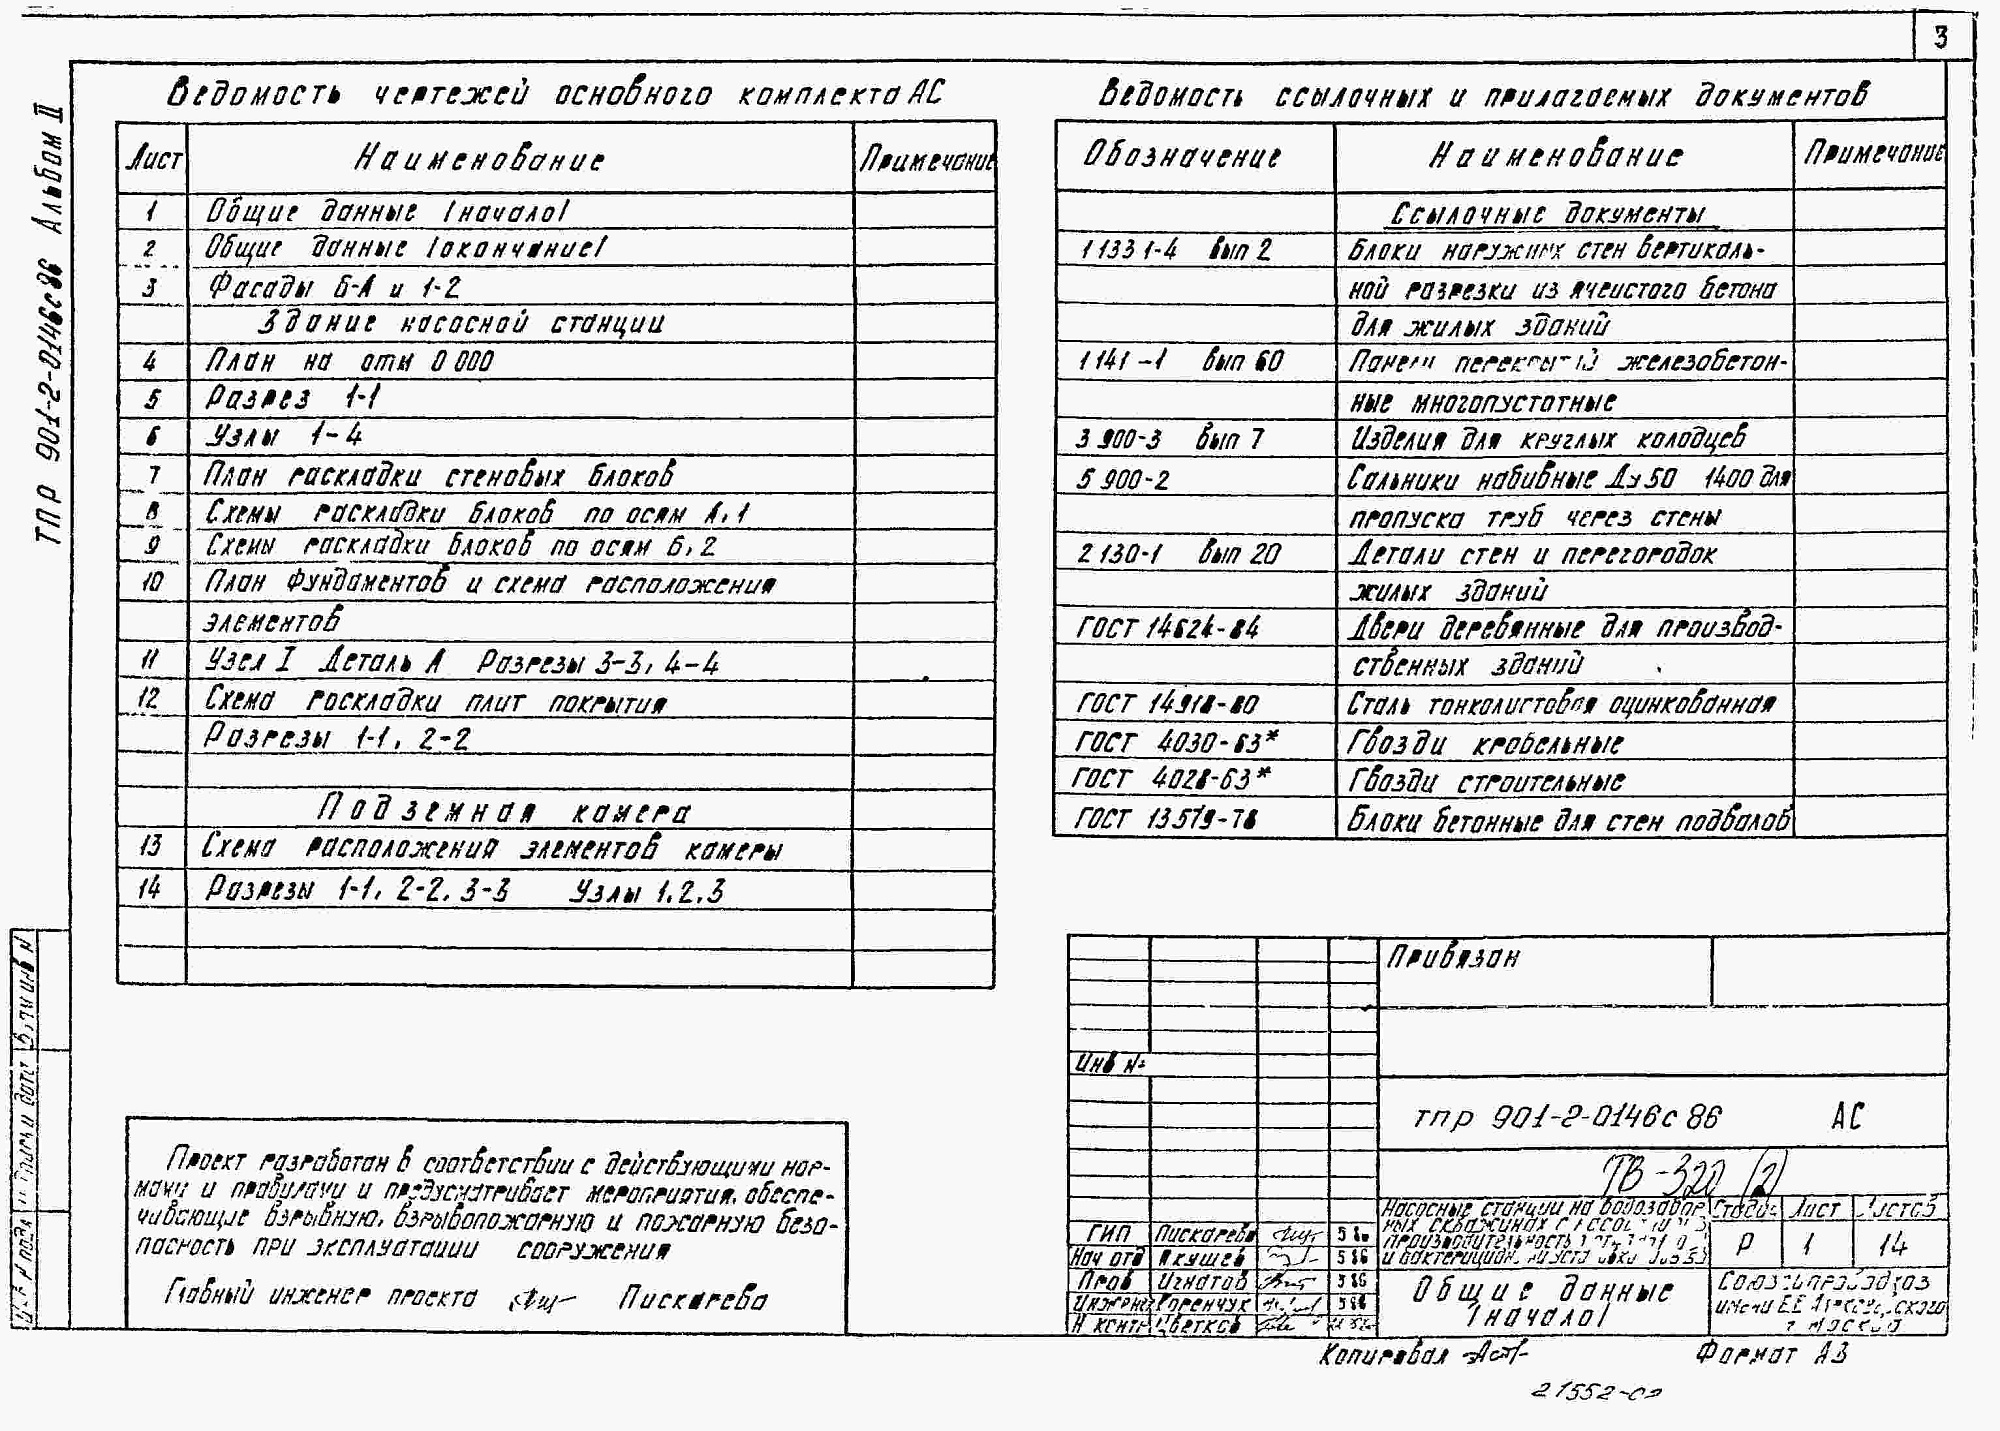 3
ТПР 901-2-0146с86 Альбом II
Ведомость чертежей основного комплекта АС
Лист Наименование Примечание
1 Общие данные /начало/
2 Общие данные /окончание/
3 Фасады Б-А и 1-2
Здание насосной станции
4 План на отм 0 000
5 Разрез 1-1
6 Узлы 1-4
7 План раскладки стеновых блоков
8 Схемы раскладки блоков по осям А, 1
9 Схемы раскладки блоков по осям Б, 2
10 План фундаментов и схема расположения
элементов
11 Узел I Деталь А Разрезы 3-3, 4-4
12 Схема раскладки плит покрытия
Разрезы 1-1, 2-2
Подземная камера
13 Схема расположения элементов камеры
14 Разрезы 1-1, 2-2, 3-3 Узлы 1,2,3
Ведомость ссылочных и прилагаемых документов
Обозначение Наименование Примечание
Ссылочные документы
1 133 1-4 вып 2 Блоки наружных стен вертикаль-
ной разрезки из ячеистого бетона
для жилых зданий
1 141-1 вып 60 Панели перекрытий железобетон-
ные многопустотные
3 900-3 вып 7 Изделия для круглых колодцев
5 900-2 Сальники набивные Ду 50 1400 для
пропуска труб через стены
2 130-1 вып 20 Детали стен и перегородок
жилых зданий
ГОСТ 14624-84 Двери деревянные для производ-
ственных зданий
ГОСТ 14918-80 Сталь тонколистовая оцинкованная
ГОСТ 4030-63* Гвозди кровельные
ГОСТ 4028-63* Гвозди строительные
ГОСТ 13579-78 Блоки бетонные для стен подвалов
Проект разработан в соответствии с действующими нор-
мами и правилами и предусматривает мероприятия, обеспе-
чивающие взрывную, взрывопожарную и пожарную безо-
пасность при эксплуатации сооружения
Главный инженер проекта Пискарева
Привязан
Инв №
тпр 901-2-0146с 86 АС
ТВ-320 (2)
Насосные станции на водозабор
ных скважинах с
производительность
и бактерицидн
Стадия Лист Листов
Р 1 14
ГИП Пискарева 5 86
Нач отд Якушев 5 86
Пров Игнатов 5 86
Инжене Коренчук 5 86
Н контр Цветков
Общие данные
/начало/
Союзгипроводхоз
имени Е.Е Алексеевского
г Москва
Копировал Формат А3
21552-02